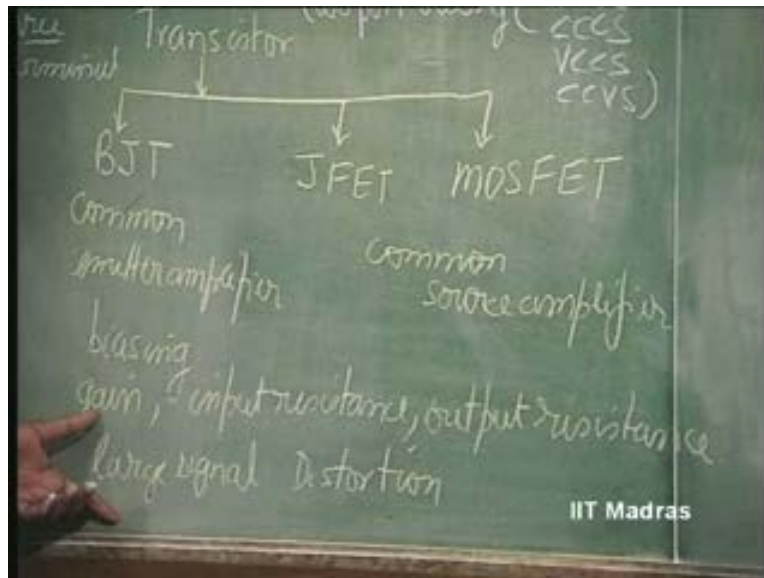 Transistor
CCCS
VCCS
CCVS)
BJT JFET MOSFET
common
emitter amplifier
common
source amplifier
biasing
gain, input resistance, output resistance
large signal Distortion
IIT Madras